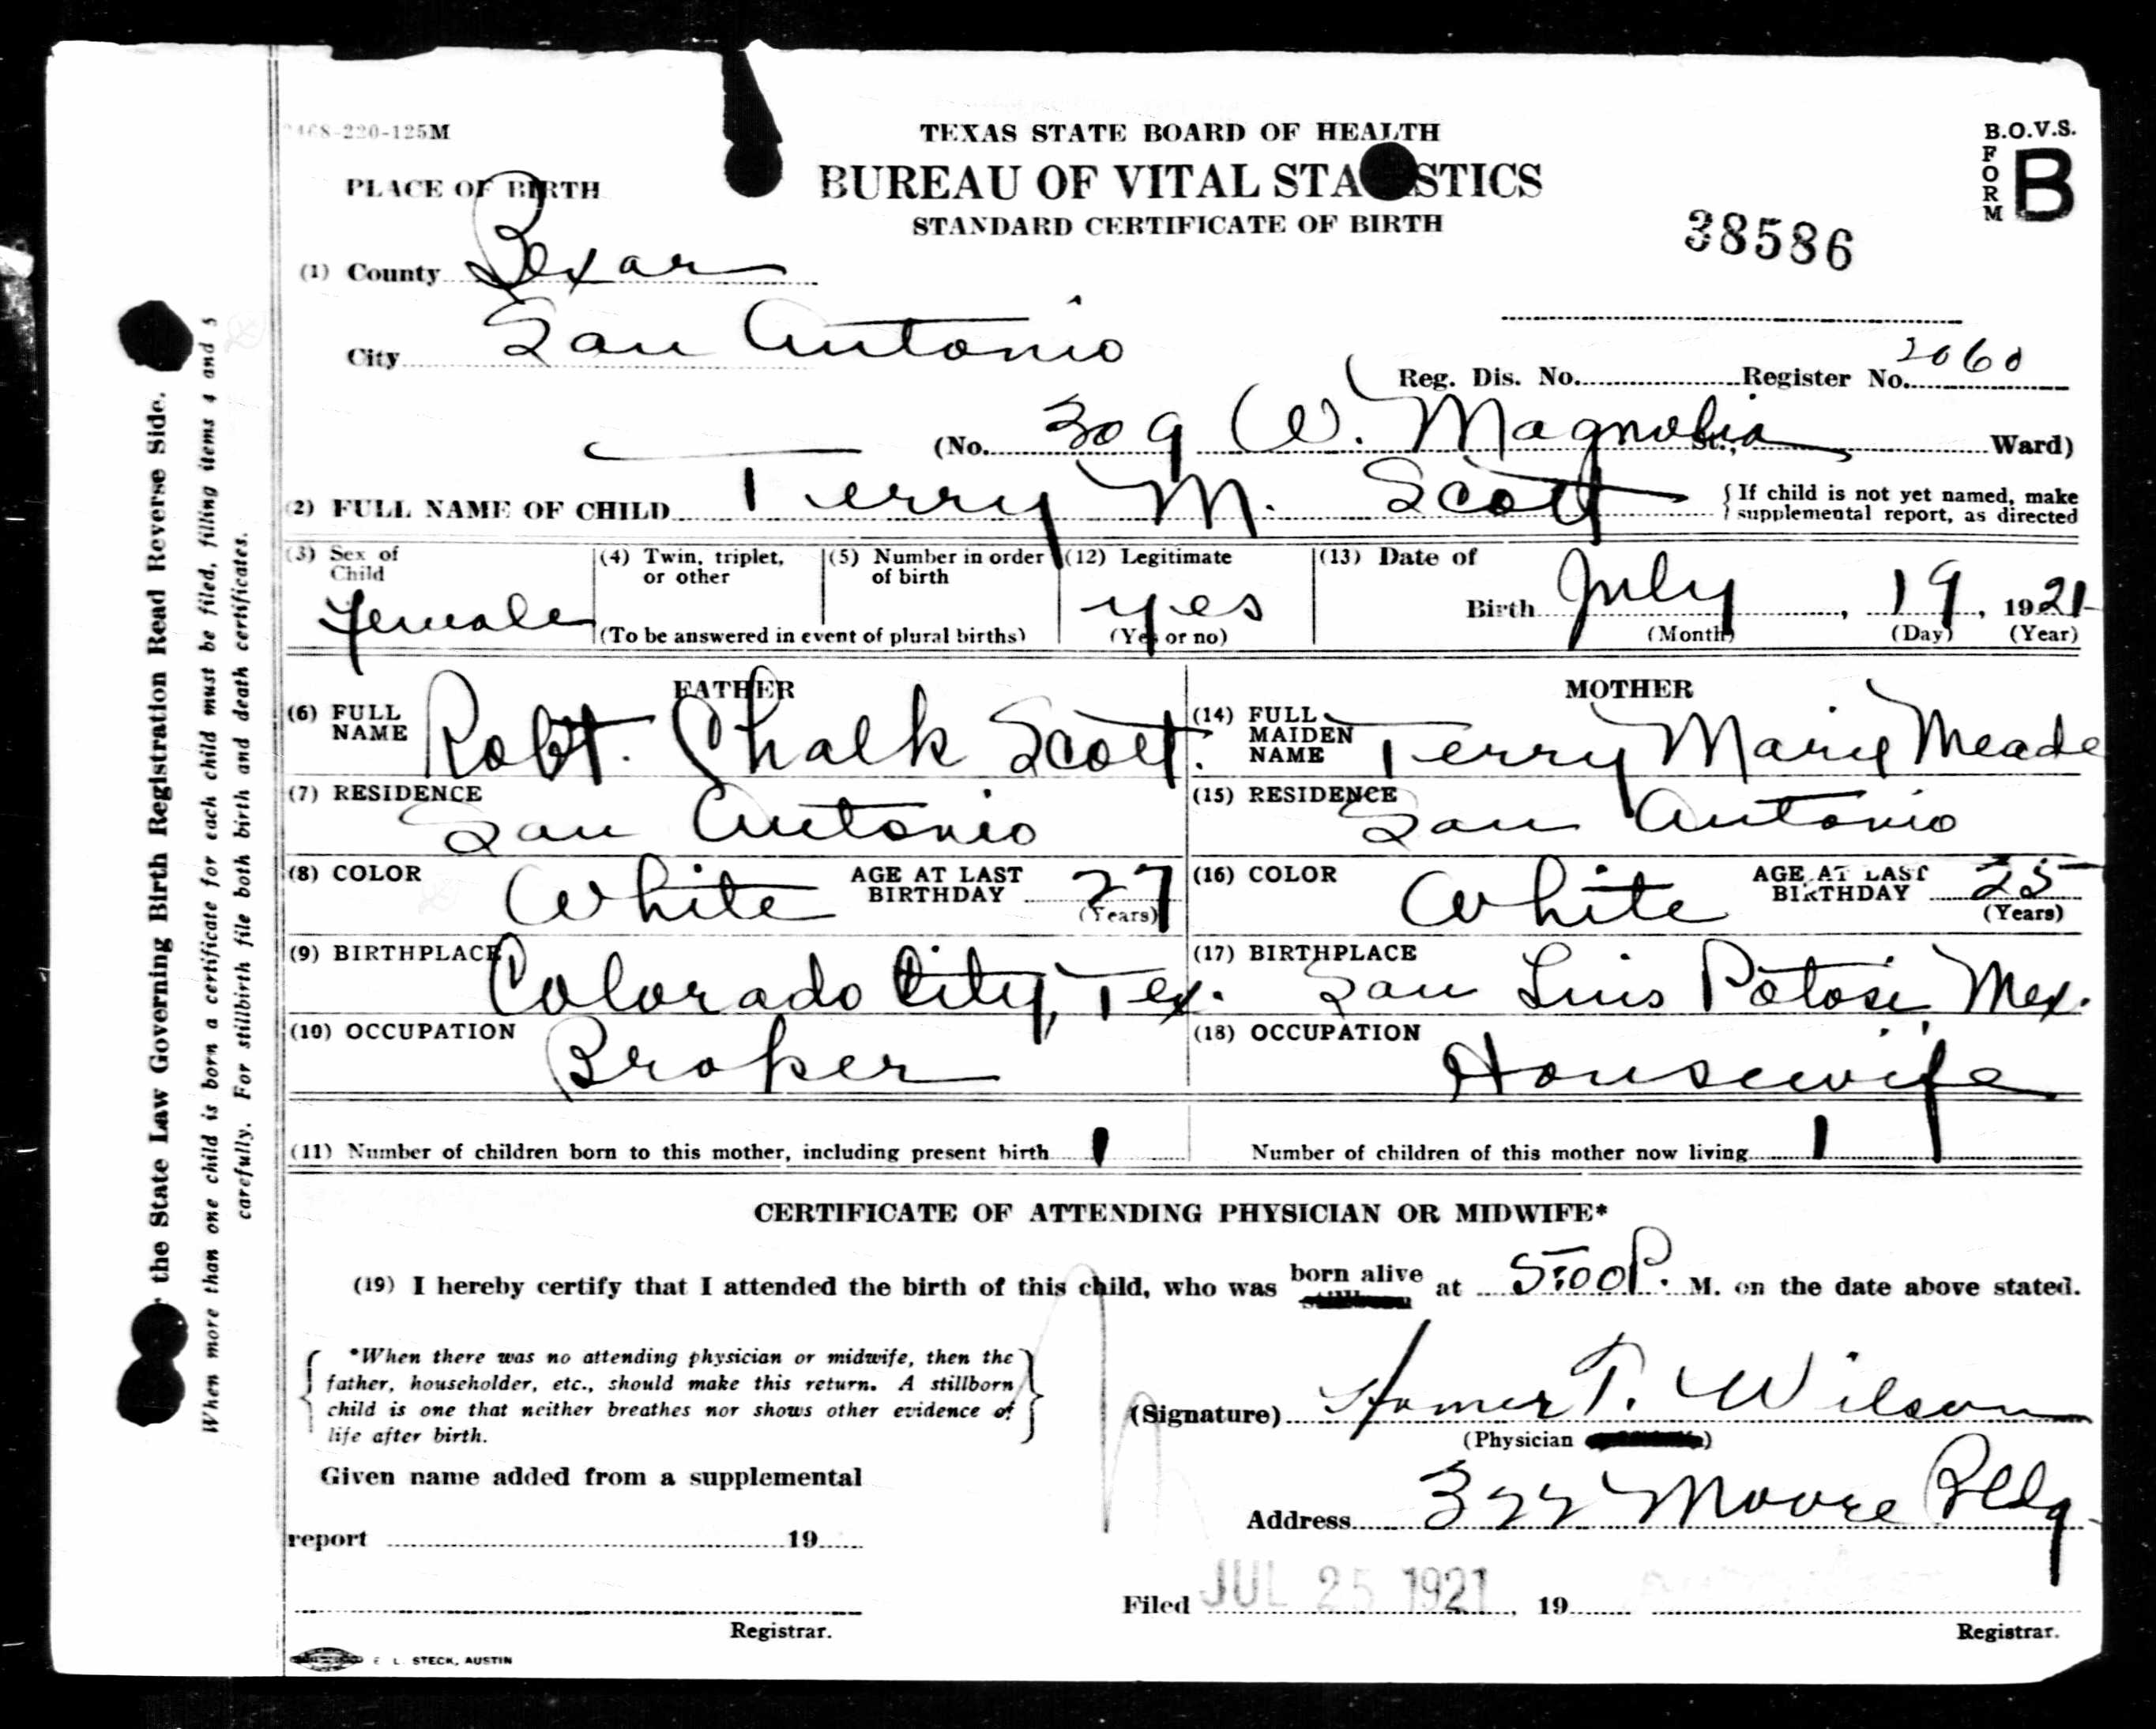 468-220-125M
TEXAS STATE BOARD OF HEALTH
BUREAU OF VITAL STA STICS
STANDARD CERTIFICATE OF BIRTH
B.O.V.S.
FORM B
38586
PLACE OF BIRTH
(1) County Bexar
City San Antonio
Reg. Dis. No. Register No. 2060
(No. 309 W. Magnolia St., Ward)
(2) FULL NAME OF CHILD Terry M. Scott
{ If child is not yet named, make
supplemental report, as directed
(3) Sex of Child Female
(4) Twin, triplet, or other
(5) Number in order of birth
(To be answered in event of plural births)
(12) Legitimate yes
(Yes or no)
(13) Date of Birth July, 19, 1921
(Month) (Day) (Year)
FATHER
(6) FULL NAME Robt. Chalk Scott.
(7) RESIDENCE San Antonio
(8) COLOR White AGE AT LAST BIRTHDAY 27 (Years)
(9) BIRTHPLACE Colorado City, Tex.
(10) OCCUPATION Broker
MOTHER
(14) FULL MAIDEN NAME Terry Marie Meade
(15) RESIDENCE San Antonio
(16) COLOR White AGE AT LAST BIRTHDAY 25 (Years)
(17) BIRTHPLACE San Luis Potosi, Mex.
(18) OCCUPATION Housewife
(11) Number of children born to this mother, including present birth 1
Number of children of this mother now living 1
CERTIFICATE OF ATTENDING PHYSICIAN OR MIDWIFE*
(19) I hereby certify that I attended the birth of this child, who was born alive at 5:00 P. M. on the date above stated.
*When there was no attending physician or midwife, then the
father, householder, etc., should make this return. A stillborn
child is one that neither breathes nor shows other evidence of
life after birth.
(Signature) Homer T. Wilson
(Physician )
Given name added from a supplemental
report 19
Address 322 Moore Bldg
Filed JUL 25 1921, 19
Registrar.
Registrar.
E. L. STECK, AUSTIN
the State Law Governing Birth Registration Read Reverse Side.
When more than one child is born a certificate for each child must be filed, filling items 4 and 5
carefully. For stillbirth file both birth and death certificates.